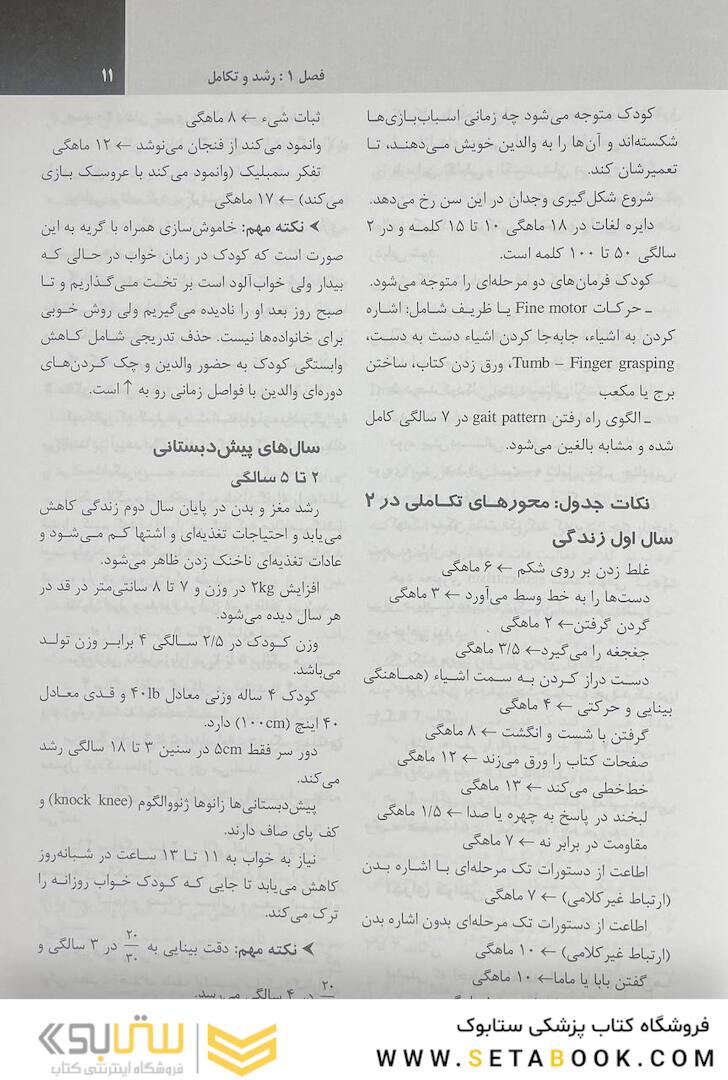 فصل ۱ : رشد و تکامل
۱۱
کودک متوجه می‌شود چه زمانی اسباب‌بازی‌ها
شکسته‌اند و آن‌ها را به والدین خویش می‌دهند، تا
تعمیرشان کند.
شروع شکل‌گیری وجدان در این سن رخ می‌دهد.
دایره لغات در ۱۸ ماهگی ۱۰ تا ۱۵ کلمه و در ۲
سالگی ۵۰ تا ۱۰۰ کلمه است.
کودک فرمان‌های دو مرحله‌ای را متوجه می‌شود.
ـ حرکات Fine motor یا ظریف شامل: اشاره
کردن به اشیاء، جابه‌جا کردن اشیاء دست به دست،
Tumb – Finger grasping، ورق زدن کتاب، ساختن
برج یا مکعب
ـ الگوی راه رفتن gait pattern در ۷ سالگی کامل
شده و مشابه بالغین می‌شود.
نکات جدول: محورهای تکاملی در ۲
سال اول زندگی
غلط زدن بر روی شکم ← ۶ ماهگی
دست‌ها را به خط وسط می‌آورد ← ۳ ماهگی
گردن گرفتن← ۲ ماهگی
جغجغه را می‌گیرد← ۳/۵ ماهگی
دست دراز کردن به سمت اشیاء (هماهنگی
بینایی و حرکتی ← ۴ ماهگی
گرفتن با شست و انگشت ← ۸ ماهگی
صفحات کتاب را ورق می‌زند ← ۱۲ ماهگی
خط‌خطی می‌کند ← ۱۳ ماهگی
لبخند در پاسخ به چهره یا صدا ← ۱/۵ ماهگی
مقاومت در برابر نه ← ۷ ماهگی
اطاعت از دستورات تک مرحله‌ای با اشاره بدن
(ارتباط غیرکلامی) ← ۷ ماهگی
اطاعت از دستورات تک مرحله‌ای بدون اشاره بدن
(ارتباط غیرکلامی) ← ۱۰ ماهگی
گفتن بابا یا ماما← ۱۰ ماهگی
ثبات شیء ← ۸ ماهگی
وانمود می‌کند از فنجان می‌نوشد ← ۱۲ ماهگی
تفکر سمبلیک (وانمود می‌کند با عروسک بازی
می‌کند) ← ۱۷ ماهگی
➤ نکته مهم: خاموش‌سازی همراه با گریه به این
صورت است که کودک در زمان خواب در حالی که
بیدار ولی خواب‌آلود است بر تخت می‌گذاریم و تا
صبح روز بعد او را نادیده می‌گیریم ولی روش خوبی
برای خانواده‌ها نیست. حذف تدریجی شامل کاهش
وابستگی کودک به حضور والدین و چک کردن‌های
دوره‌ای والدین با فواصل زمانی رو به ↑ است.
سال‌های پیش‌دبستانی
۲ تا ۵ سالگی
رشد مغز و بدن در پایان سال دوم زندگی کاهش
می‌یابد و احتیاجات تغذیه‌ای و اشتها کم می‌شود و
عادات تغذیه‌ای ناخنک زدن ظاهر می‌شود.
افزایش ۲kg در وزن و ۷ تا ۸ سانتی‌متر در قد در
هر سال دیده می‌شود.
وزن کودک در ۲/۵ سالگی ۴ برابر وزن تولد
می‌باشد.
کودک ۴ ساله وزنی معادل ۴۰lb و قدی معادل
۴۰ اینچ (۱۰۰cm) دارد.
دور سر فقط ۵cm در سنین ۳ تا ۱۸ سالگی رشد
می‌کند.
پیش‌دبستانی‌ها زانوها ژنووالگوم (knock knee) و
کف پای صاف دارند.
نیاز به خواب به ۱۱ تا ۱۳ ساعت در شبانه‌روز
کاهش می‌یابد تا جایی که کودک خواب روزانه را
ترک می‌کند.
➤ نکته مهم: دقت بینایی به ۲۰/۳۰ در ۳ سالگی و
۲۰ در ۴ سالگی می‌رسد.
فروشگاه کتاب پزشکی ستابوک
WWW.SETABOOK.COM
ستابوک
فروشگاه اینترنتی کتاب